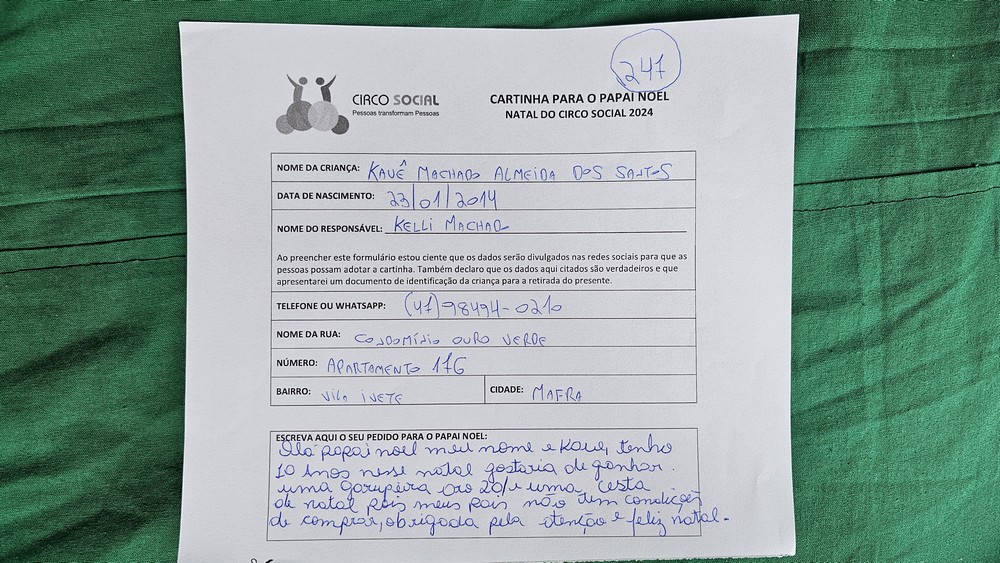 247
CIRCO SOCIAL
Pessoas transformam Pessoas
CARTINHA PARA O PAPAI NOEL
NATAL DO CIRCO SOCIAL 2024
NOME DA CRIANÇA: KAUÊ MACHADO ALMEIDA DOS SANTOS
DATA DE NASCIMENTO: 23/01/2014
NOME DO RESPONSÁVEL: KELLI MACHADO
Ao preencher este formulário estou ciente que os dados serão divulgados nas redes sociais para que as
pessoas possam adotar a cartinha. Também declaro que os dados aqui citados são verdadeiros e que
apresentarei um documento de identificação da criança para a retirada do presente.
TELEFONE OU WHATSAPP: (47)98494-0210
NOME DA RUA: CONDOMÍNIO OURO VERDE
NÚMERO: APARTAMENTO 176
BAIRRO: Vila IVETE CIDADE: MAFRA
ESCREVA AQUI O SEU PEDIDO PARA O PAPAI NOEL:
Olá papai noel meu nome e Kaue, tenho
10 anos nesse natal gostaria de ganhar
uma garupeira aro 20 e uma cesta
de natal pois meus pais não tem condições
de comprar, obrigada pela atenção e feliz natal.